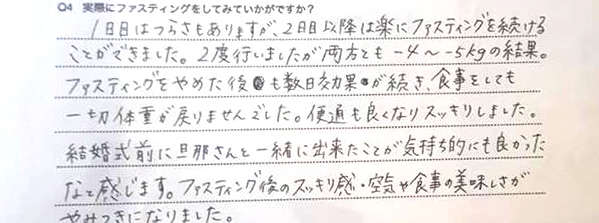 Q4 実際にファスティングをしてみていかがですか?
1日目はつらさもありますが、2日目以降は楽にファスティングを続ける
ことができました。2度行いましたが両方とも-4〜-5kgの結果。
ファスティングをやめた後も数日効果が続き、食事をしても
一切体重が戻りませんでした。便通も良くなりスッキリしました。
結婚式前に旦那さんと一緒に出来たことが気持ち的にも良かった
なと感じます。ファスティング後のスッキリ感・空気や食事の美味しさが
やみつきになりました。